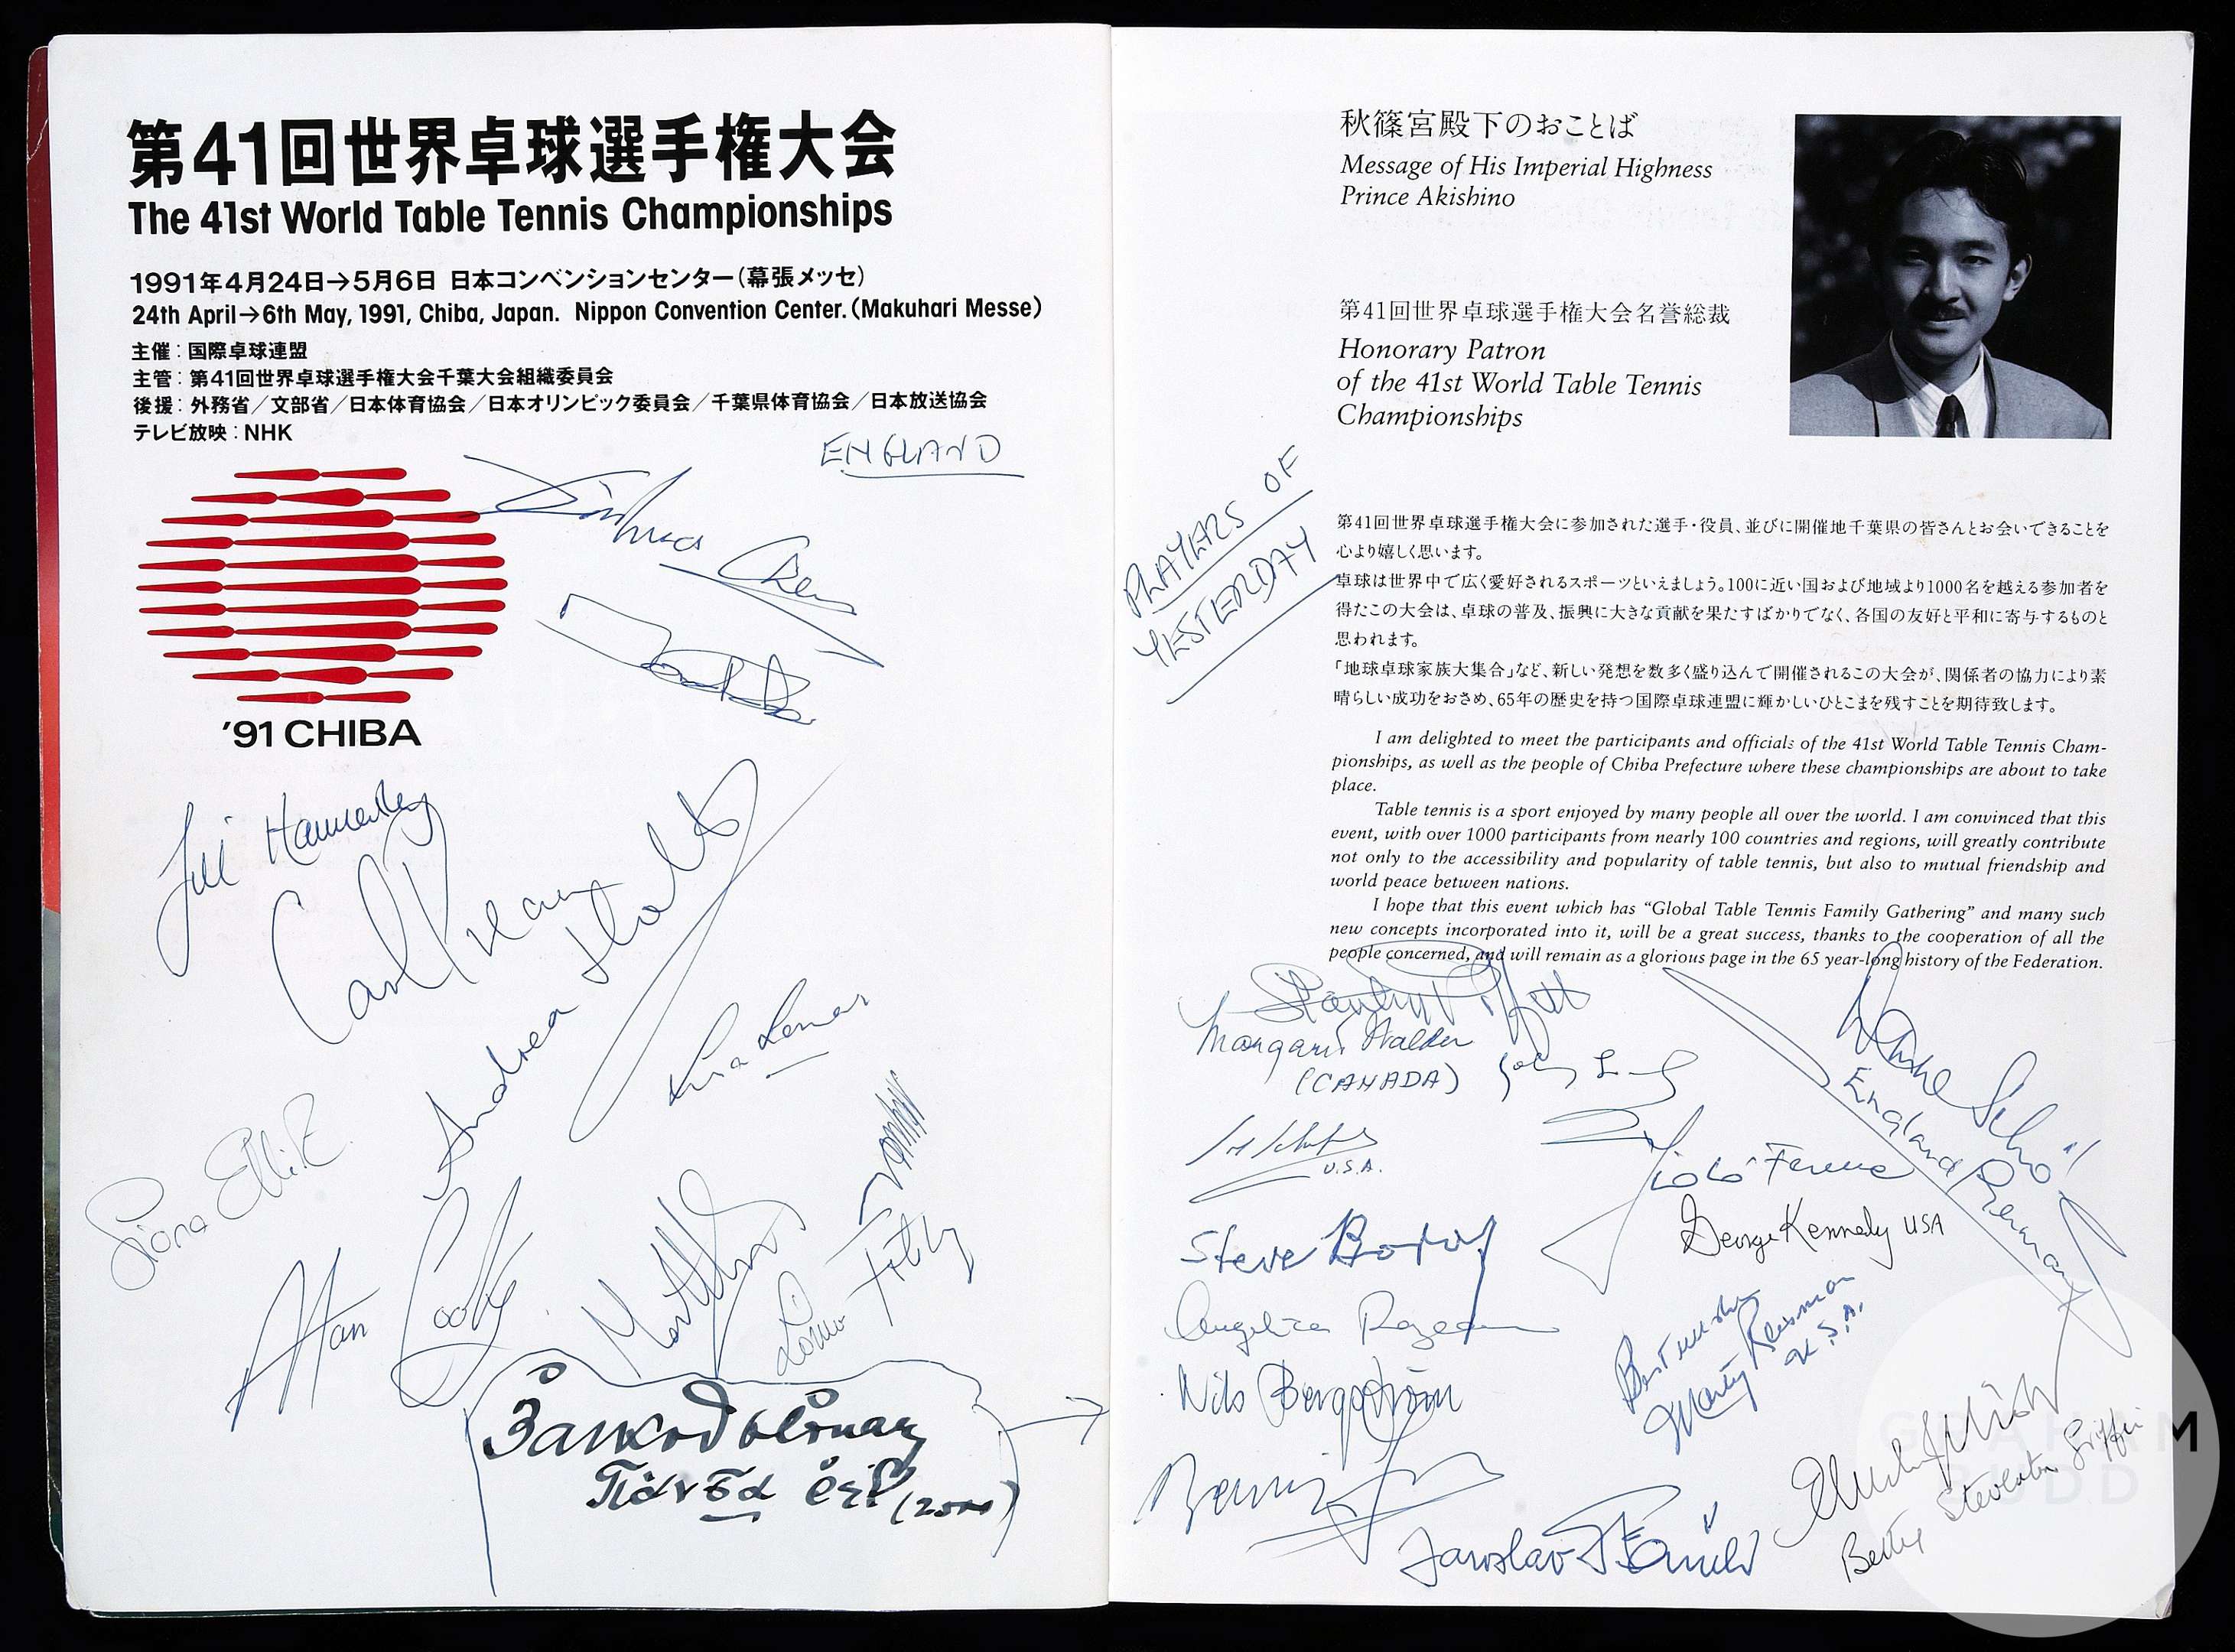 第41回世界卓球選手権大会
The 41st World Table Tennis Championships
1991年4月24日→5月6日 日本コンベンションセンター(幕張メッセ)
24th April→6th May, 1991, Chiba, Japan. Nippon Convention Center. (Makuhari Messe)
主催:国際卓球連盟
主管:第41回世界卓球選手権大会千葉大会組織委員会
後援:外務省/文部省/日本体育協会/日本オリンピック委員会/千葉県体育協会/日本放送協会
テレビ放映:NHK
ENGLAND
'91 CHIBA
Jill Hammersley
Carl Prean
Andrea Holt
Lisa Lomas
Fiona Elliot
Alan Cooke
(2000)
秋篠宮殿下のおことば
Message of His Imperial Highness
Prince Akishino
第41回世界卓球選手権大会名誉総裁
Honorary Patron
of the 41st World Table Tennis
Championships
PLAYERS OF
YESTERDAY
第41回世界卓球選手権大会に参加された選手・役員、並びに開催地千葉県の皆さんとお会いできることを
心より嬉しく思います。
卓球は世界中で広く愛好されるスポーツといえましょう。100に近い国および地域より1000名を越える参加者を
得たこの大会は、卓球の普及、振興に大きな貢献を果たすばかりでなく、各国の友好と平和に寄与するものと
思われます。
「地球卓球家族大集合」など、新しい発想を数多く盛り込んで開催されるこの大会が、関係者の協力により素
晴らしい成功をおさめ、65年の歴史を持つ国際卓球連盟に輝かしいひとこまを残すことを期待致します。
I am delighted to meet the participants and officials of the 41st World Table Tennis Cham-
pionships, as well as the people of Chiba Prefecture where these championships are about to take
place.
Table tennis is a sport enjoyed by many people all over the world. I am convinced that this
event, with over 1000 participants from nearly 100 countries and regions, will greatly contribute
not only to the accessibility and popularity of table tennis, but also to mutual friendship and
world peace between nations.
I hope that this event which has “Global Table Tennis Family Gathering” and many such
new concepts incorporated into it, will be a great success, thanks to the cooperation of all the
people concerned, and will remain as a glorious page in the 65 year-long history of the Federation.
Margaret Walker
(CANADA)
Diane Schöler
England/Germany
U.S.A.
George Kennedy USA
Steve Boros
Angelica Rozeanu
Best wishes
Marty Reisman
U.S.A.
Nils Bergström
Jaroslav
Betty Steventon Griffin
GRAHAM
BUDD